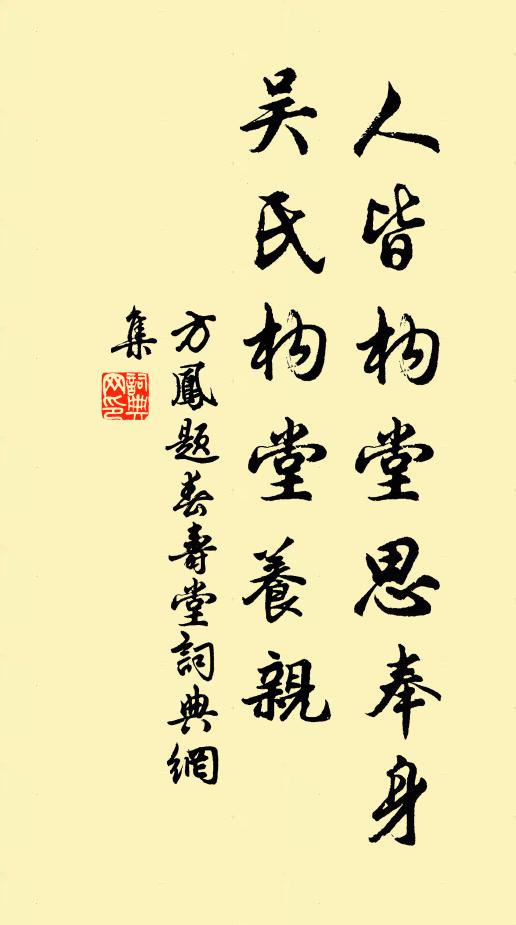 人皆构堂思奉身
吴氏构堂養親
方鳳题春壽堂詞典網
集
詞典网印